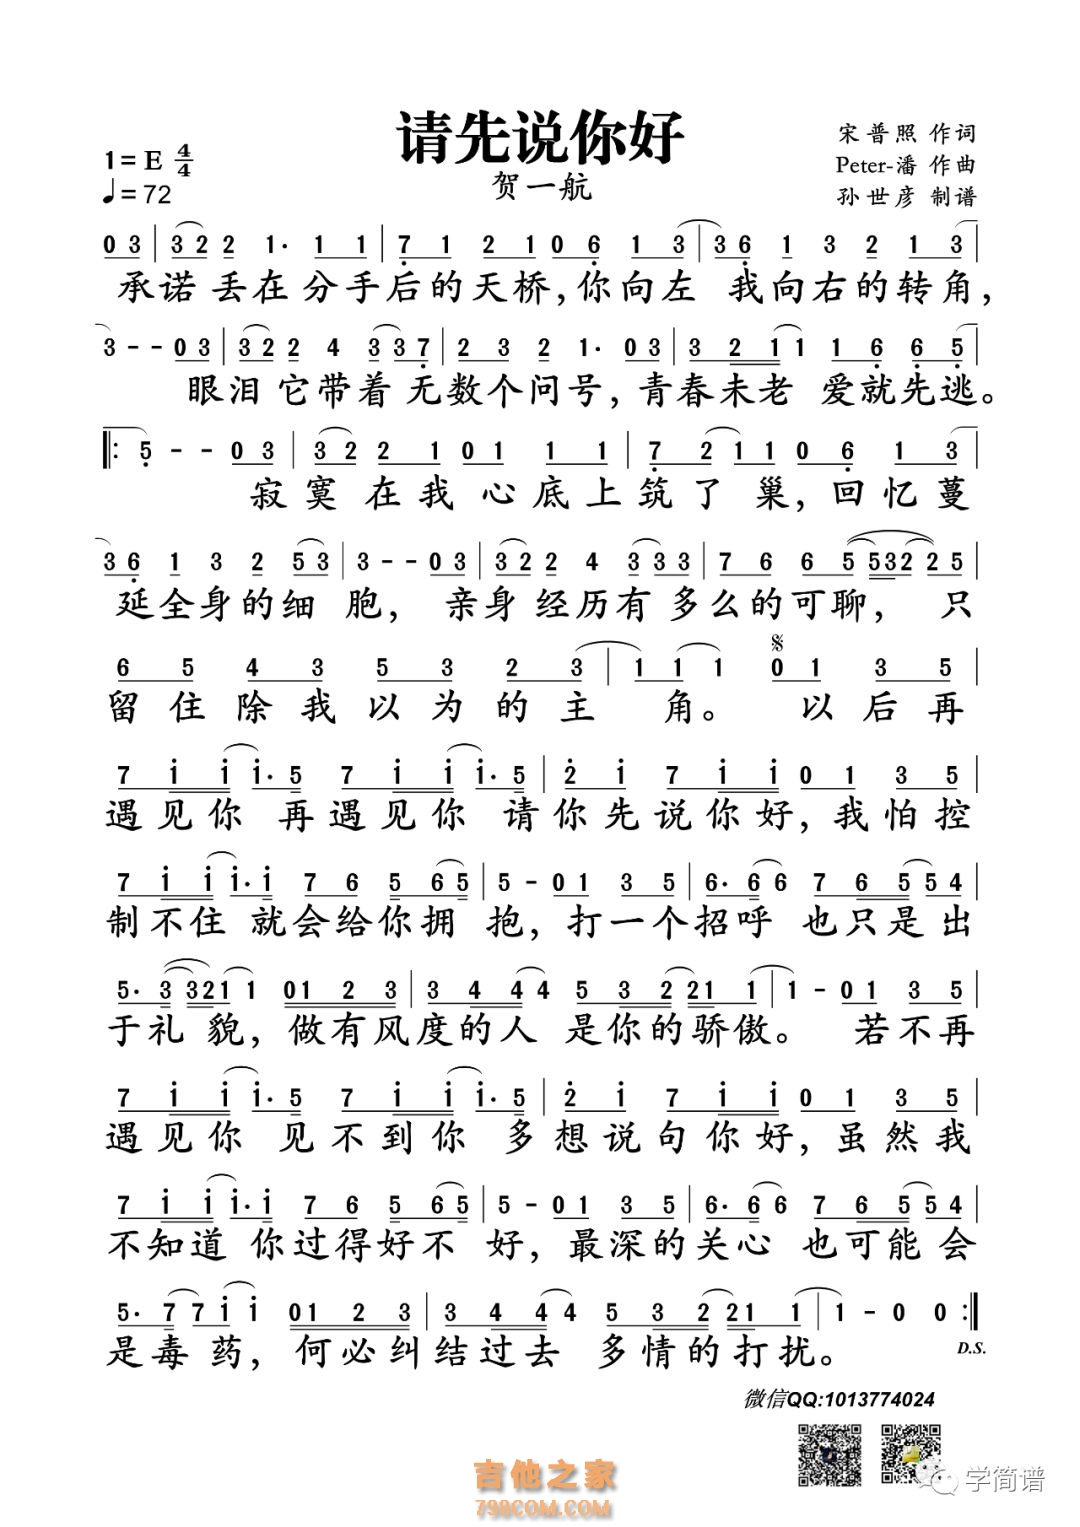 请先说你好
贺一航
1=E 4/4
♩=72
宋普照 作词
Peter-潘 作曲
孙世彦 制谱
0 3 | 3 2 2 1· 1 1 | 7 1 2 1 0 6 1 3 | 3 6 1 3 2 1 3 |
承诺 丢在分手后的天桥,你向左 我向右的转角,
3 - - 0 3 | 3 2 2 4 3 3 7 | 2 3 2 1· 0 3 | 3 2 1 1 1 6 6 5 |
眼泪它带着 无数个问号,青春未老 爱就先逃。
‖: 5 - - 0 3 | 3 2 2 1 0 1 1 1 | 7 2 1 1 0 6 1 3 |
寂寞在我心底上筑了巢,回忆蔓
3 6 1 3 2 5 3 | 3 - - 0 3 | 3 2 2 4 3 3 3 | 7 6 6 5 5 3 2 2 5 |
延全身的细 胞, 亲身经历有多么的可聊, 只
𝄋
6 5 4 3 5 3 2 3 | 1 1 1 0 1 3 5 |
留住除我以为的主 角。 以后再
7 i i i· 5 7 i i i· 5 | 2 i 7 i i 0 1 3 5 |
遇见你 再遇见你 请你先说你好,我怕控
7 i i i· i 7 6 5 6 5 | 5 - 0 1 3 5 | 6· 6 6 7 6 5 5 4 |
制不住 就会给你拥 抱,打一个招呼 也只是出
5· 3 3 2 1 1 0 1 2 3 | 3 4 4 4 5 3 2 2 1 1 | 1 - 0 1 3 5 |
于礼 貌,做有风度的人 是你的骄傲。 若不再
7 i i i· 5 7 i i i· 5 | 2 i 7 i i 0 1 3 5 |
遇见你 见不到你 多想说句你好,虽然我
7 i i i· i 7 6 5 6 5 | 5 - 0 1 3 5 | 6· 6 6 7 6 5 5 4 |
不知道 你过得好不 好,最深的关心 也可能会
5· 7 7 i i 0 1 2 3 | 3 4 4 4 5 3 2 2 1 1 | 1 - 0 0 :‖
是毒 药,何必纠结过去 多情的打扰。
D.S.
微信QQ:1013774024
吉他之家
798COM.COM
学简谱